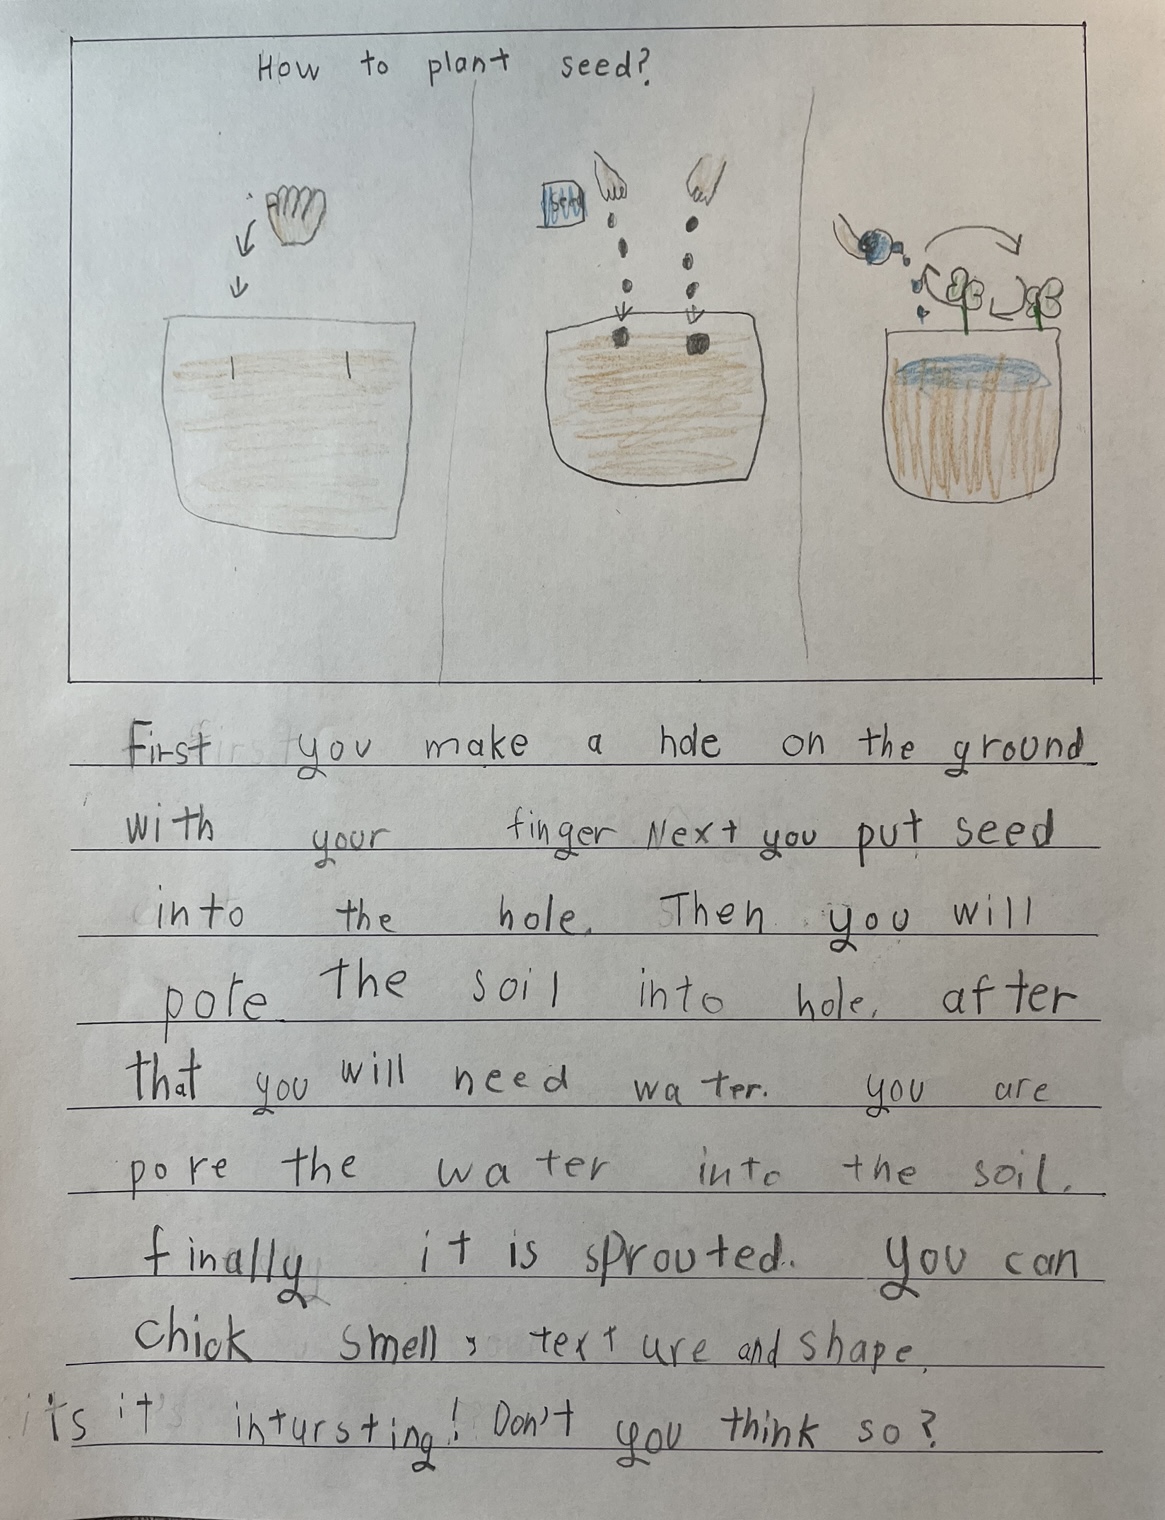 How to plant seed?
seed
First you make a hole on the ground
with your finger Next you put seed
into the hole. Then you will
pore the soil into hole. after
that you will need water. you are
pore the water into the soil.
finally it is sprouted. you can
chick smell, texture and shape.
its it intursting! Don't you think so?